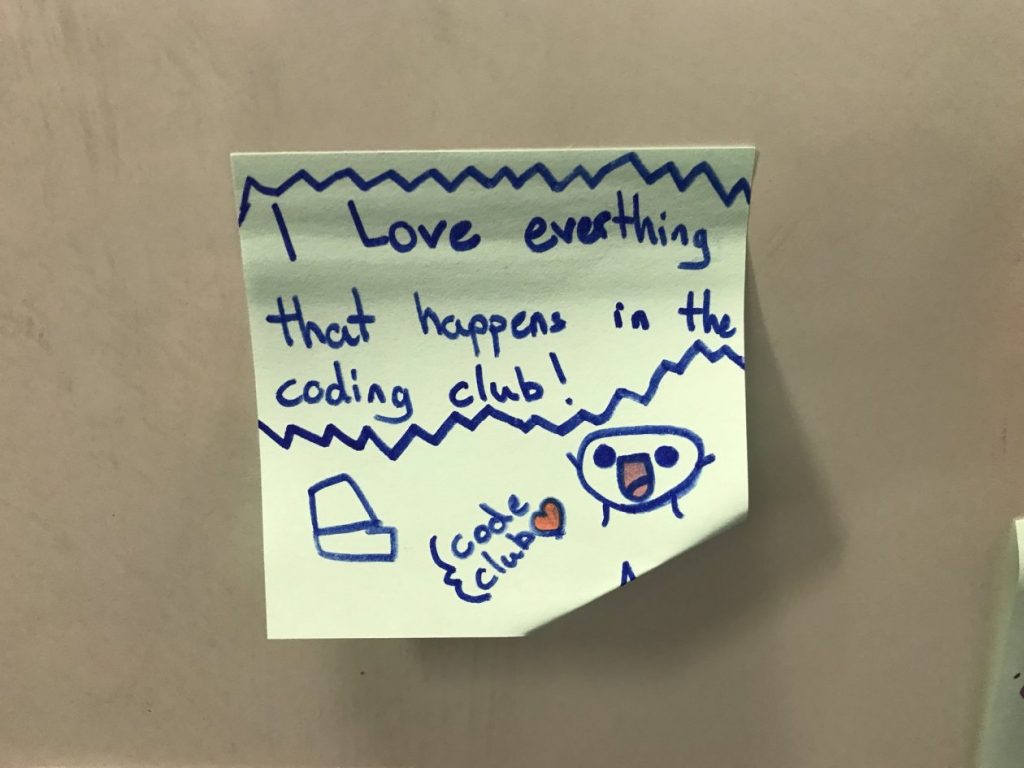 I Love everthing
that happens in the
coding club!
code
club